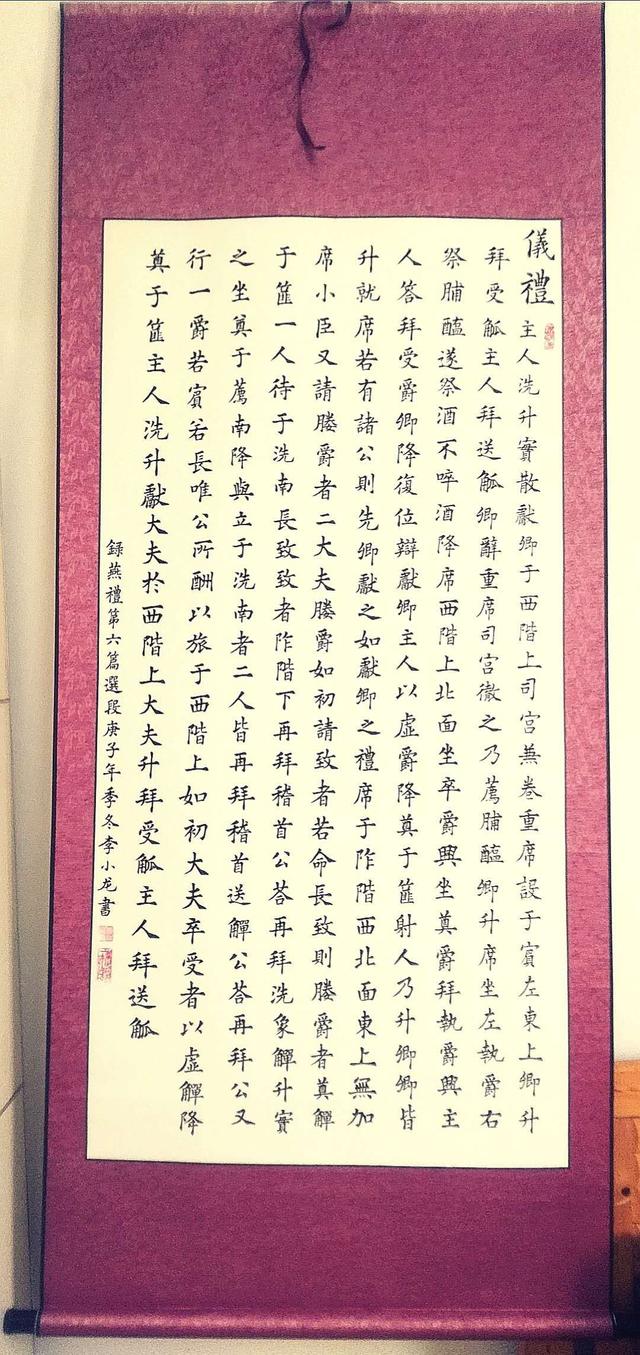 儀禮 主人洗升實散獻卿于西階上司宮兼卷重席設于賓左東上卿升
拜受觚主人拜送觚卿辭重席司宮徹之乃薦脯醢卿升席坐左執爵右
祭脯醢遂祭酒不啐酒降席西階上北面坐卒爵興坐奠爵拜執爵興主
人答拜受爵卿降復位辯獻卿主人以虛爵降奠于篚射人乃升卿卿皆
升就席若有諸公則先卿獻之如獻卿之禮席于阼階西北面東上無加
席小臣又請媵爵者二大夫媵爵如初請致者若命長致則媵爵者奠觶
于篚一人待于洗南長致致者阼階下再拜稽首公荅再拜洗象觶升實
之坐奠于薦南降與立于洗南者二人皆再拜稽首送觶公荅再拜公又
行一爵若賓若長唯公所酬以旅于西階上如初大夫卒受者以虛觶降
奠于篚主人洗升獻大夫於西階上大夫升拜受觚主人拜送觚
錄燕禮第六篇選段庚子年季冬李小龙書